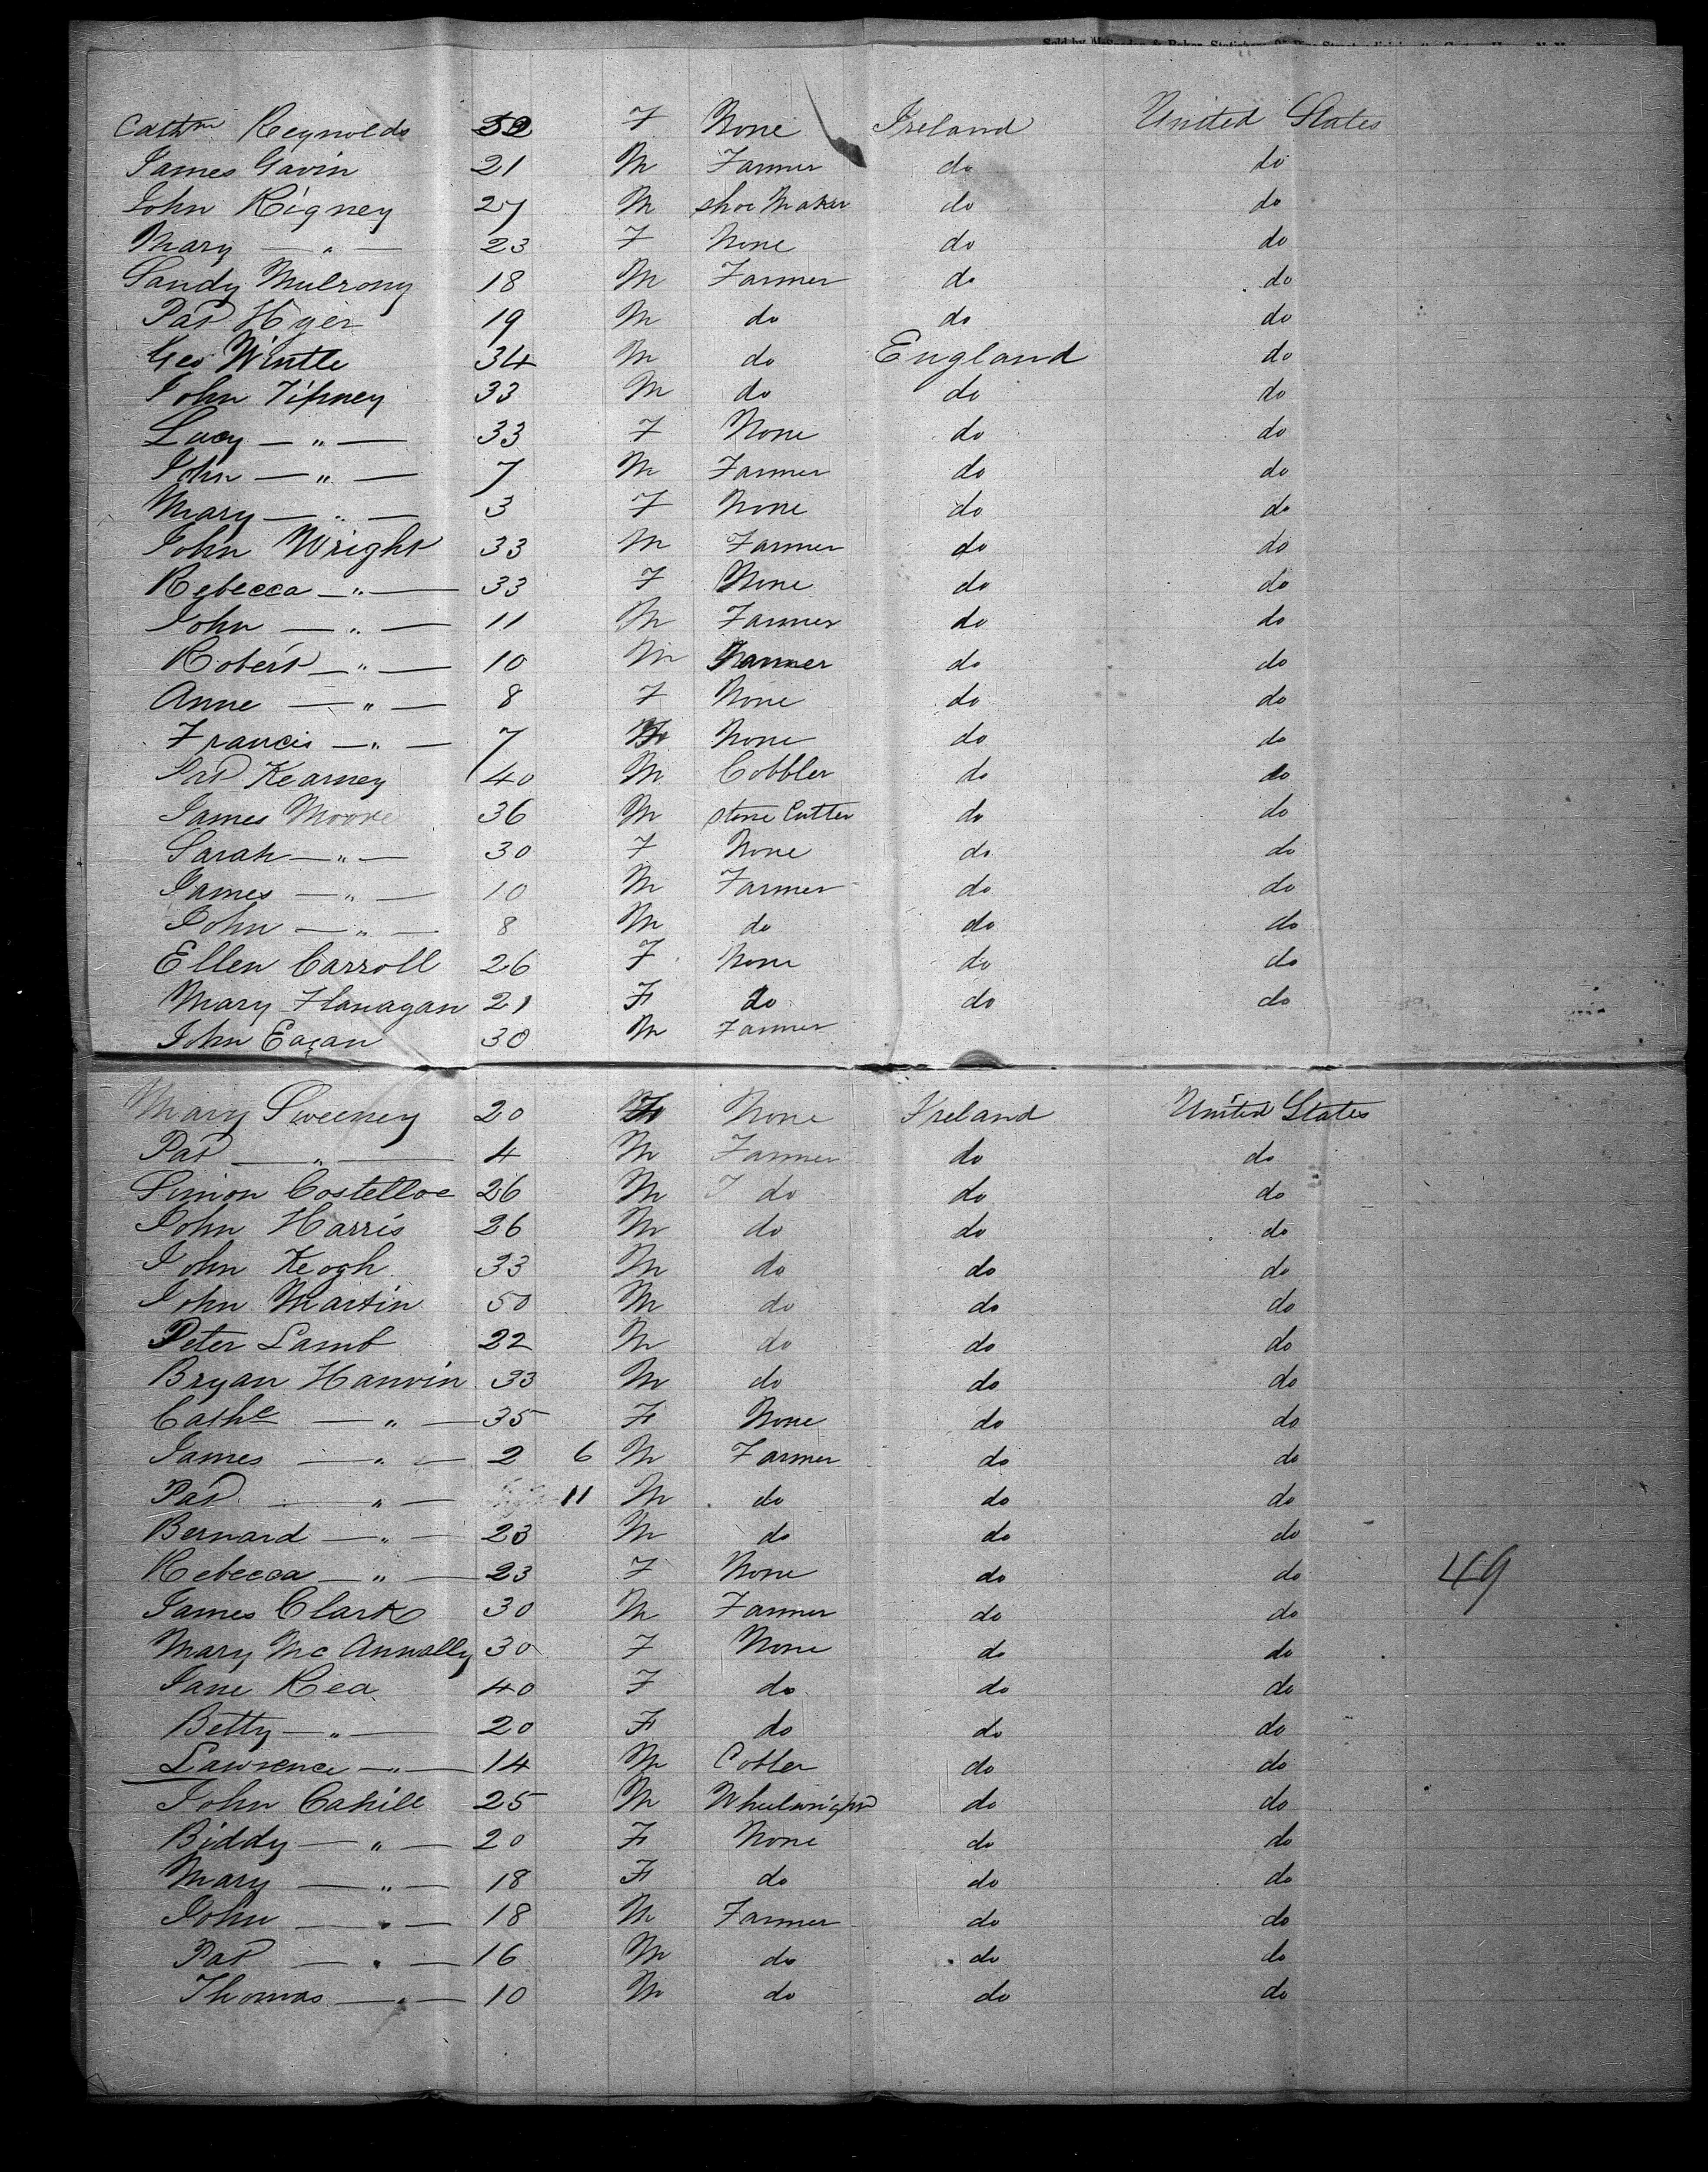 Cathm Reynolds 52 F None Ireland United States
James Gavin 21 M Farmer do do
John Rigney 27 M shoe Maker do do
Mary — " — 23 F None do do
Sandy Mulrony 18 M Farmer do do
Pat Hyer 19 M do do do
Geo Wintle 34 M do England do
John Tipney 33 M do do do
Lucy — " — 33 F None do do
John — " — 7 M Farmer do do
Mary — " — 3 F None do do
John Wright 33 M Farmer do do
Rebecca — " — 33 F None do do
John — " — 11 M Farmer do do
Robert — " — 10 M Farmer do do
Anne — " — 8 F None do do
Francis — " — 7 None do do
Pat Kearney 40 M Cobbler do do
James Moore 36 M stone Cutter do do
Sarah — " — 30 F None do do
James — " — 10 M Farmer do do
John — " — 8 M do do do
Ellen Carroll 26 F None do do
Mary Flanagan 21 F do do do
John Eagan 30 M Farmer
Mary Sweeney 20 F None Ireland United States
Pat — " — 4 M Farmer do do
Simon Costelloe 26 M do do do
John Harris 26 M do do do
John Keogh 33 M do do do
John Martin 50 M do do do
Peter Lamb 22 M do do do
Bryan Hanvin 33 M do do do
Cathe — " — 35 F None do do
James — " — 2 6 M Farmer do do
Pat — " — 11 M do do do
Bernard — " — 23 M do do do
Rebecca — " — 23 F None do do 49
James Clark 30 M Farmer do do
Mary Mc Annally 30 F None do do
Jane Rea 40 F do do do
Betty — " — 20 F do do do
Lawrence — " — 14 M Cobler do do
John Cahill 25 M Wheelwright do do
Biddy — " — 20 F None do do
Mary — " — 18 F do do do
John — " — 18 M Farmer do do
Pat — " — 16 M do do do
Thomas — " — 10 M do do do